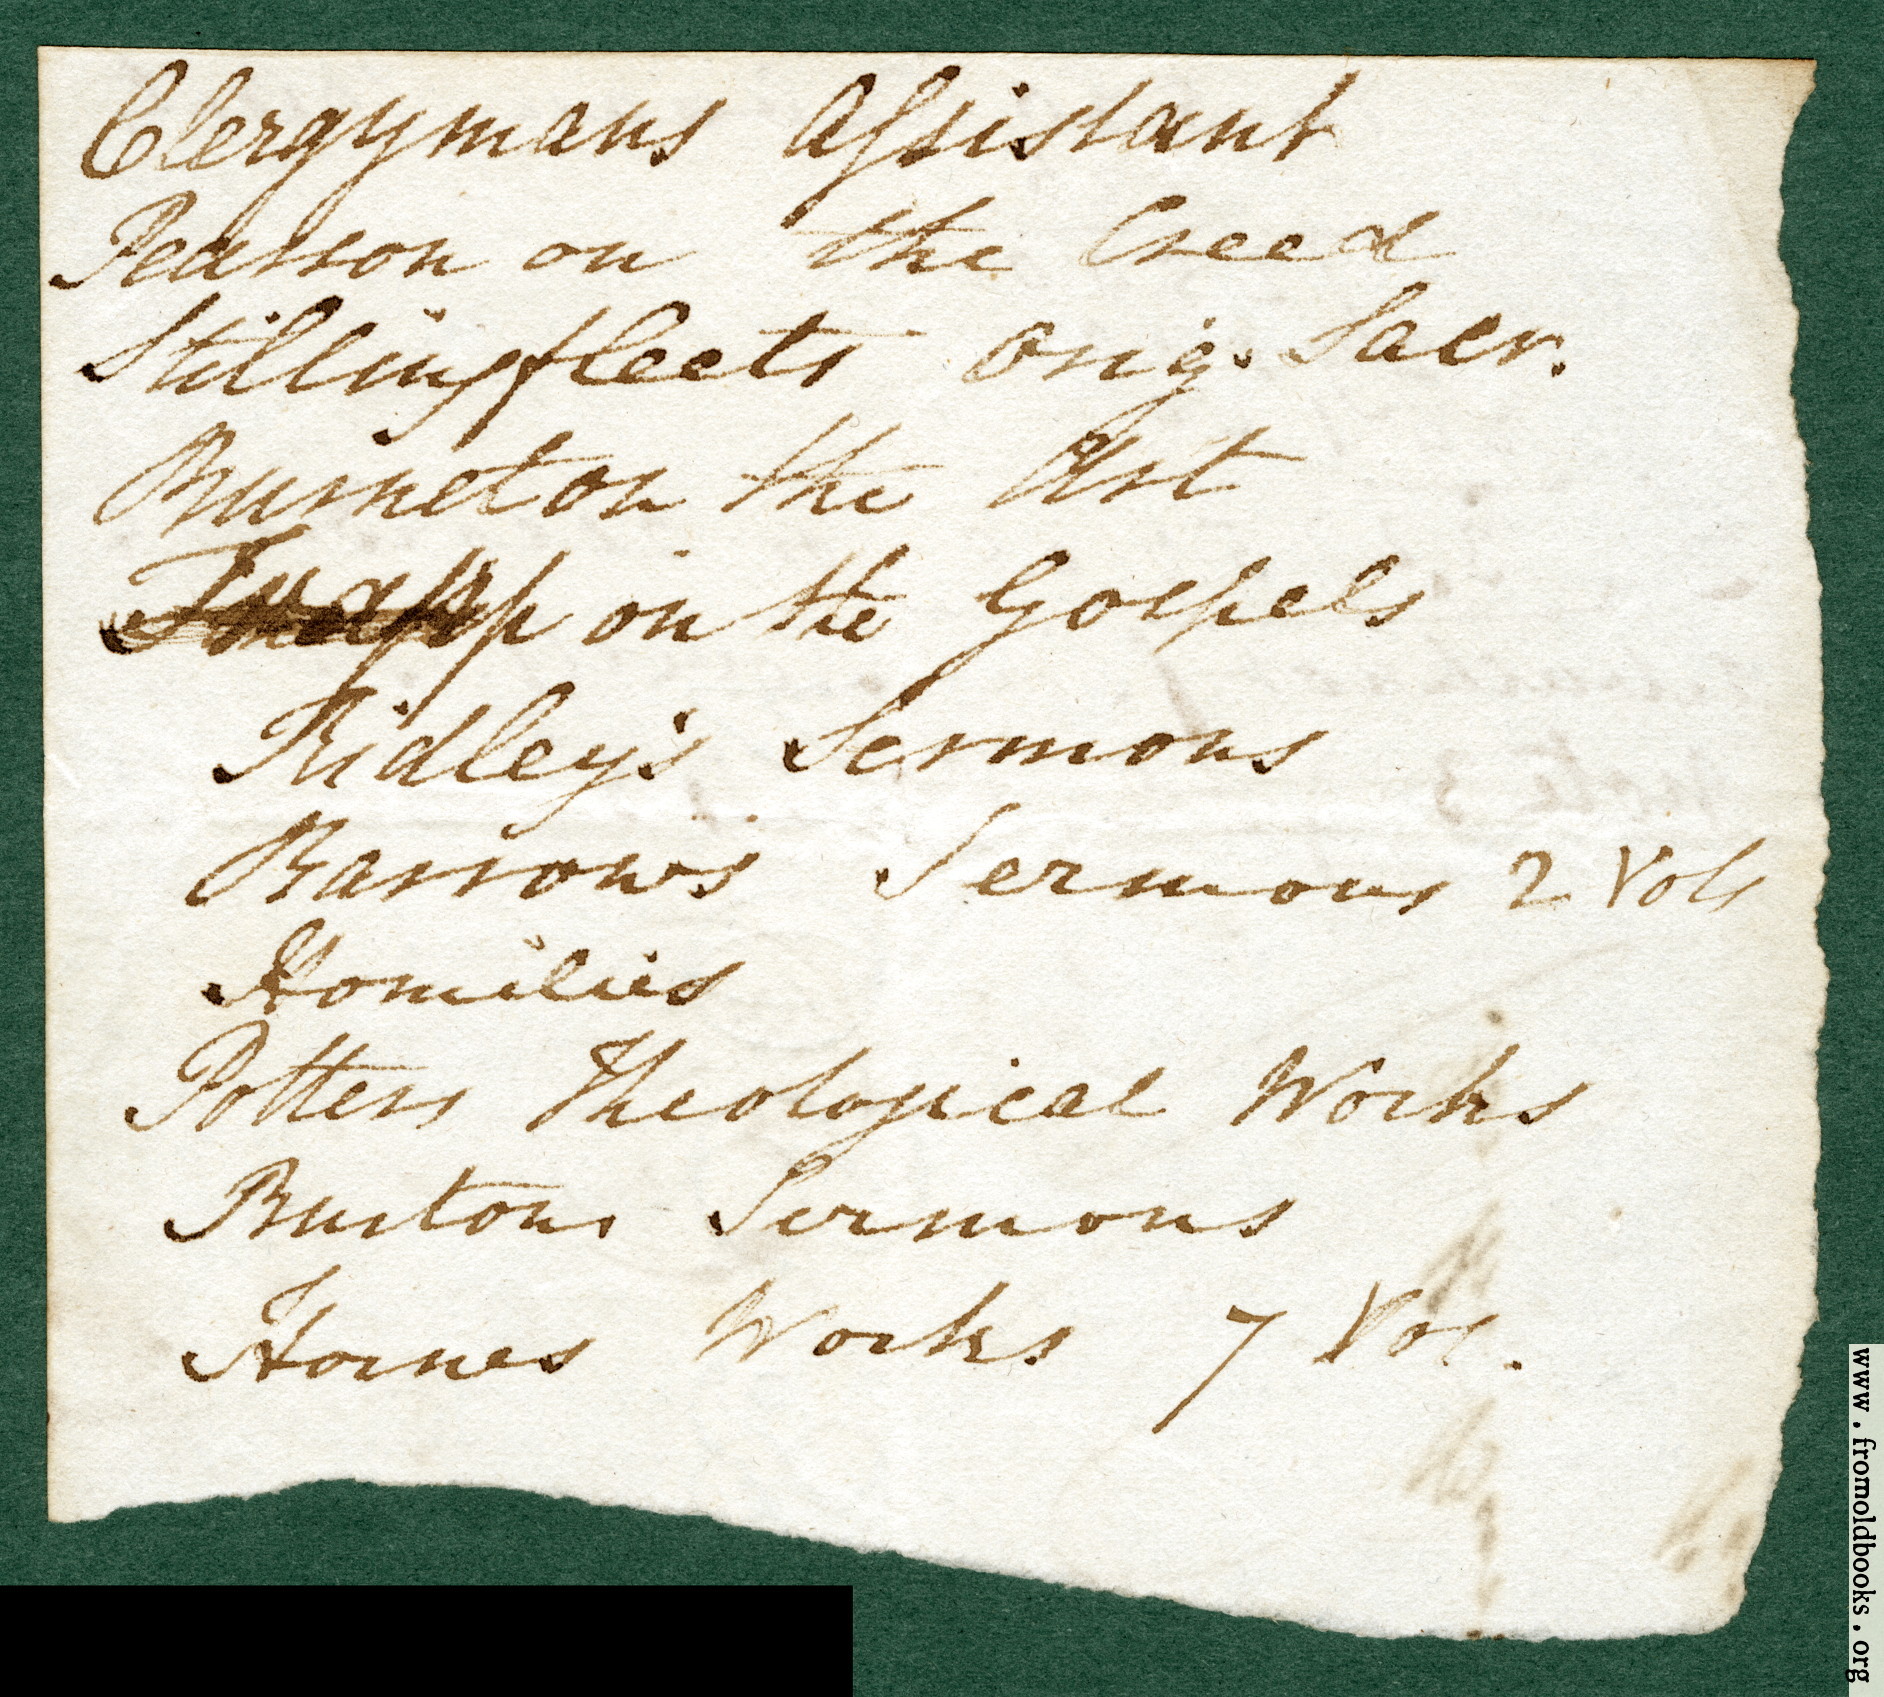 Clergymans Assistant
Pearson on the Creed
Stillingfleets Orig. Sacr.
Burnet on the Art
Trapp on the Gospels
Ridley's Sermons
Barrow's Sermons 2 Vols
Homilies
Potters Theological Works
Burtons Sermons
Hornes Works 7 Vol.
www.fromoldbooks.org